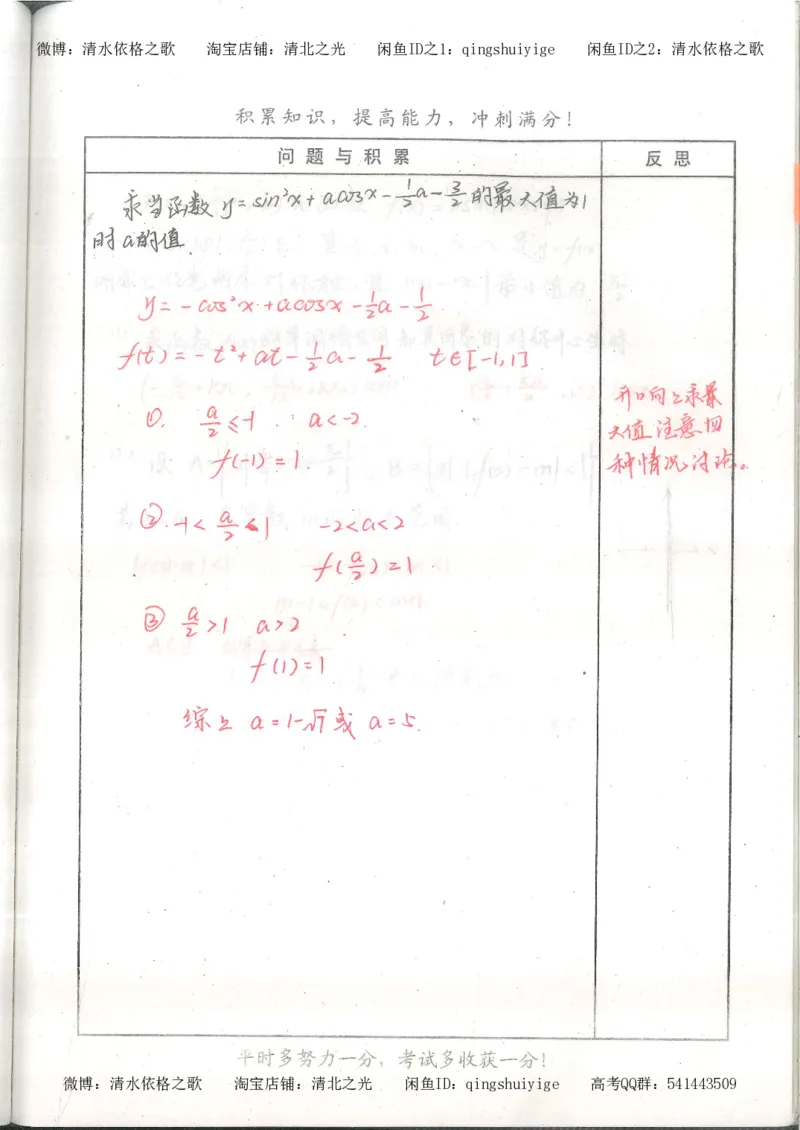 微博：清水依格之歌 淘宝店铺：清北之光 闲鱼ID之1：qingshuiyige 闲鱼ID之2：清水依格之歌
积累知识，提高能力，冲刺满分！
问 题 与 积 累 反 思
求当函数 y=sin²x+acosx-½a-3/2 的最大值为1
时 a的值.
y=-cos²x+acosx-½a-½.
f(t)=-t²+at-½a-½ t∈[-1,1]
①. a/2≤-1 . a<-2.
f(-1)=1.
②.-1<a/2≤1 -2<a<2
f(a/2)=1
③ a/2>1 a>2
f(1)=1
综上 a=1-√7或 a=5.
开口向上求最
大值 注意四
种情况讨论。
平时多努力一分，考试多收获一分！
微博：清水依格之歌 淘宝店铺：清北之光 闲鱼ID：qingshuiyige 高考QQ群：541443509